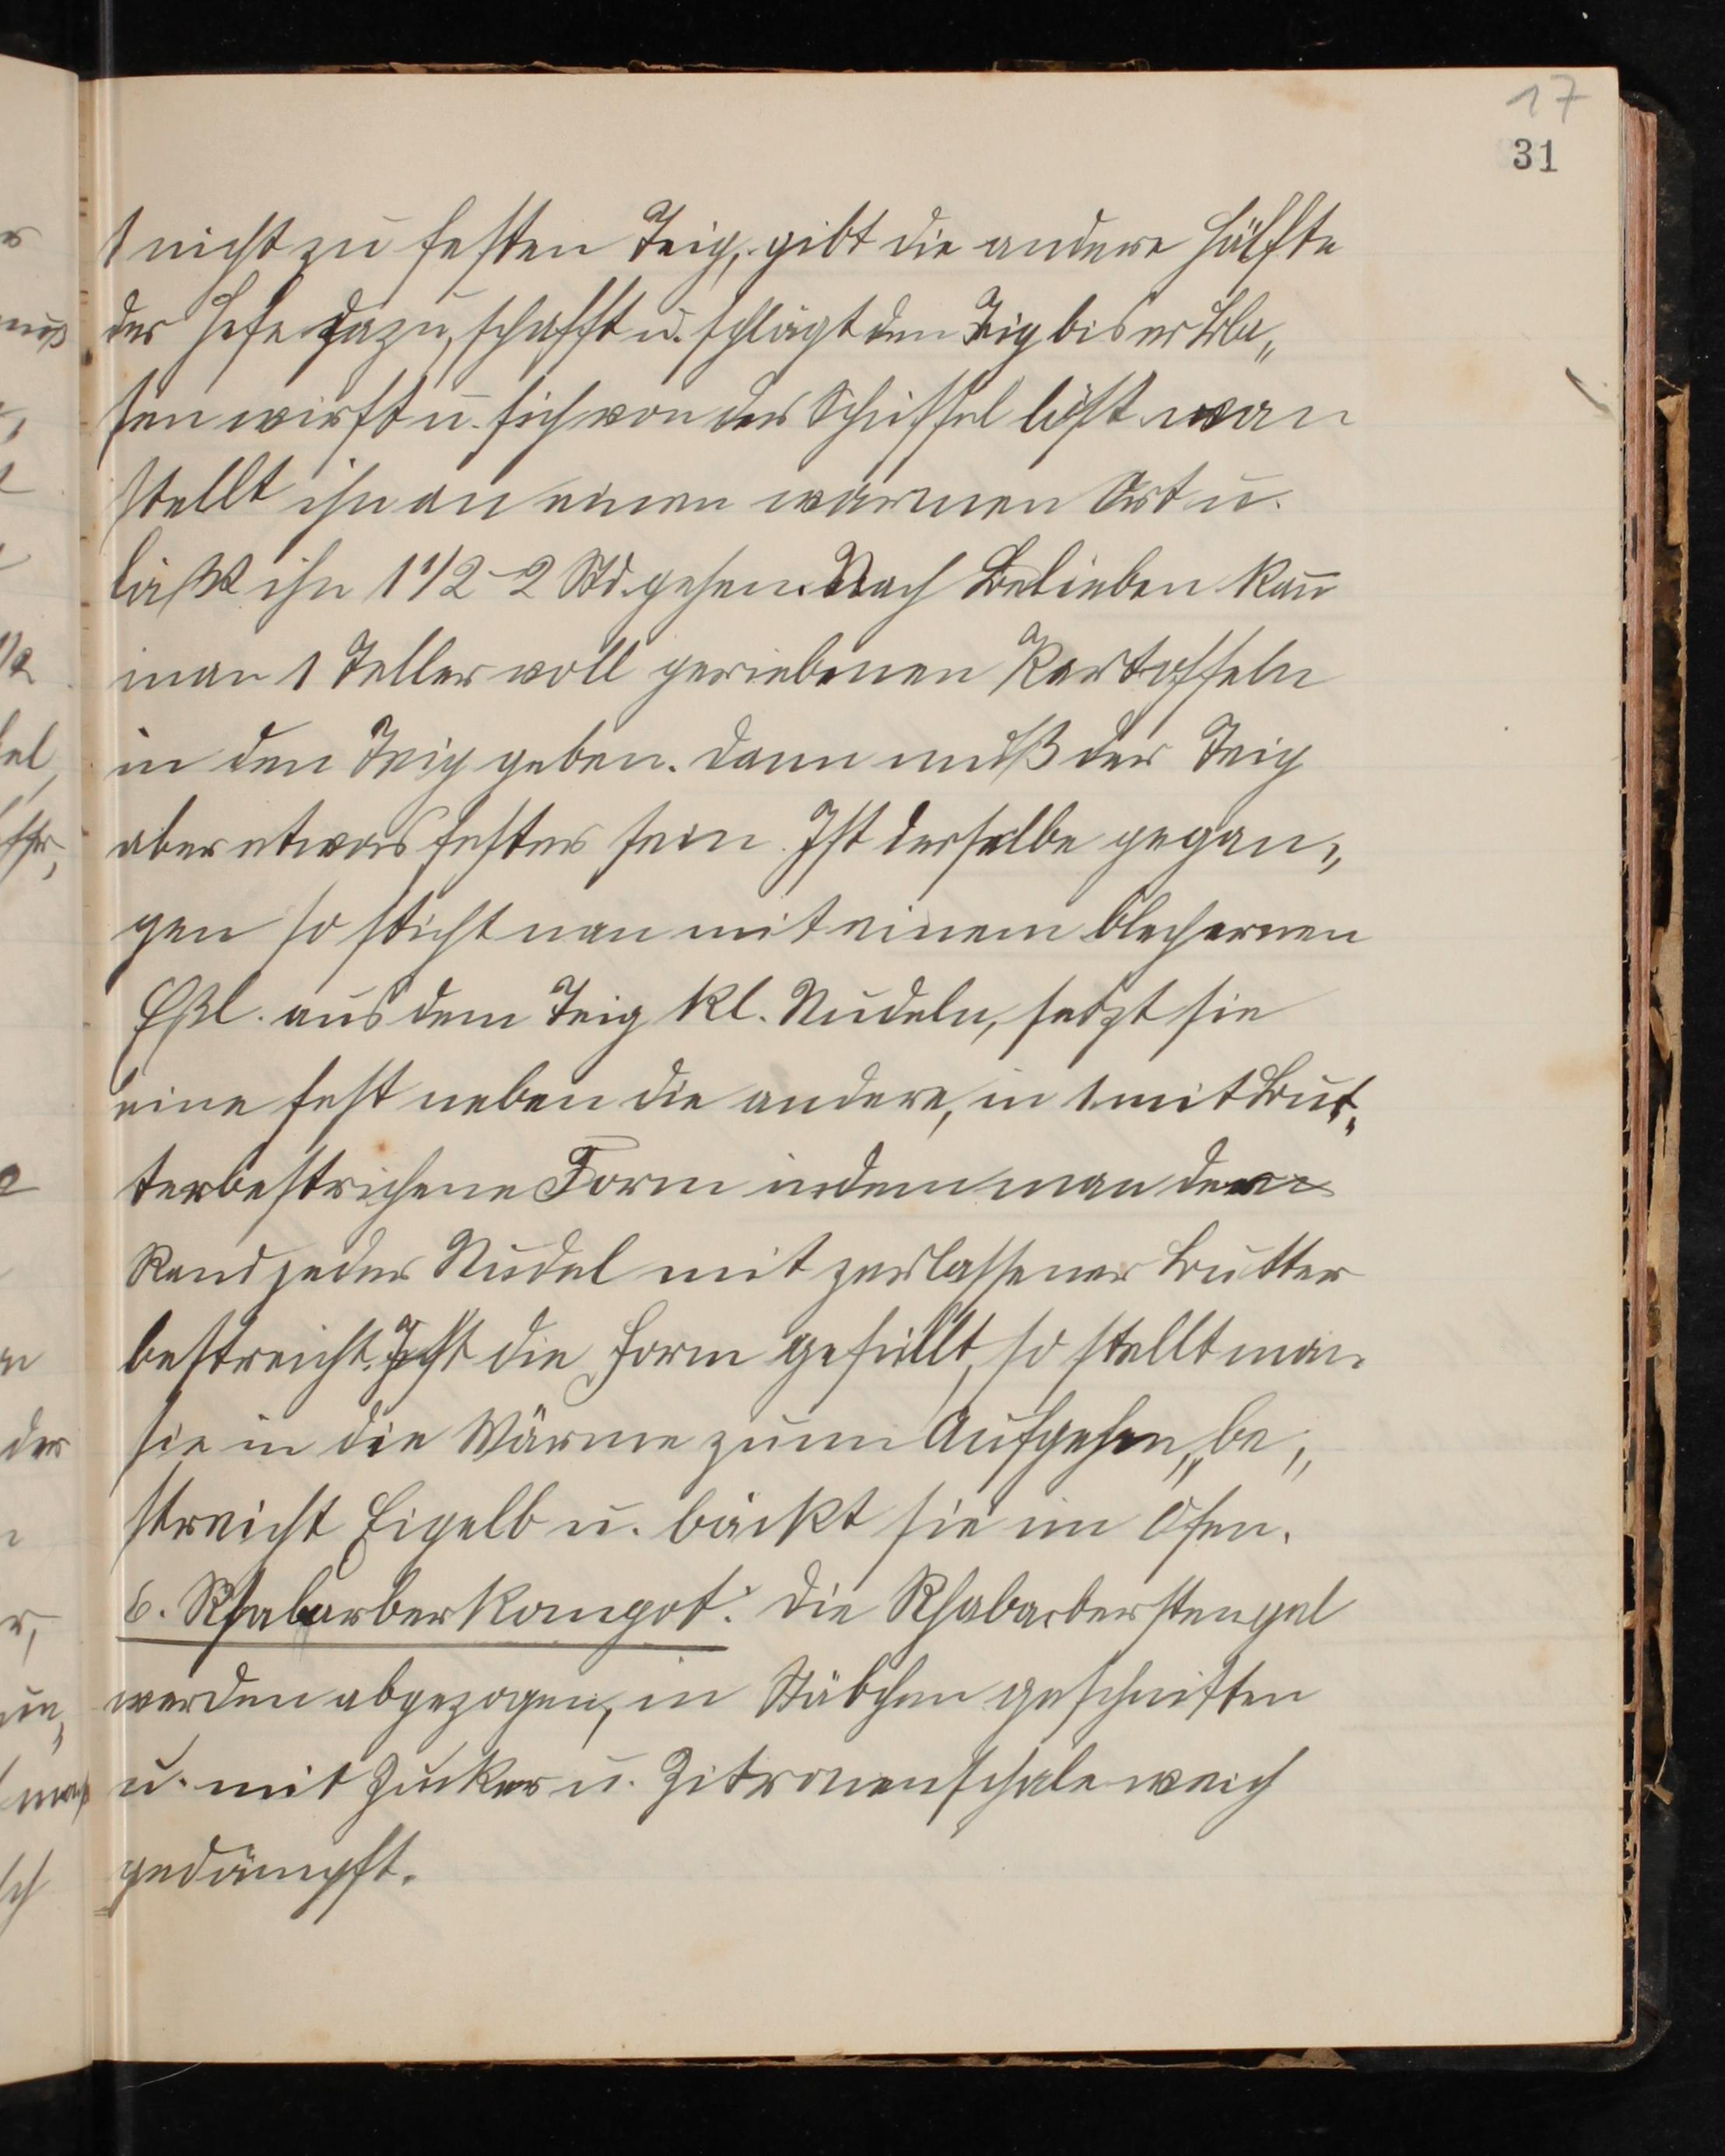 17
31
1 nicht zu festen Teig, gibt die andere Hälfte
der Hefe dazu, schafft u. schlägt den Teig bis er Bla„
sen wirft u. sich von der Schüssel löst man
stellt ihn an einen warmen Ort u.
läßt ihn 1 1/2 - 2 Std. gehen. Nach Belieben kan̅
man 1 Teller voll geriebenen Kartoffeln
in den Teig geben. Dann muß der Teig
aber etwas fester sein. Ist derselbe gegan„
gen so sticht man mit einem blechernen
Eßl. aus dem Teig kl. Nudeln, setzt sie
eine fest neben die andere, in 1 mit But„
terbestrichene Form indem man den
Rand jeder Nudel mit zerlassener Butter
bestreicht. Ist die Form gefüllt, so stellt man
sie in die Wärme zum Aufgehen, be„
streicht Eigelb u. bäckt sie im Ofen.
6. Rhabarberkompot: Die Rhabarberstengel
werden abgezogen, in Stäbchen geschnitten
u. mit Zucker u. Zitronenschale weich
gedämpft.